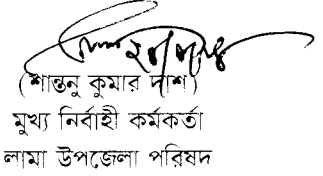 (শান্তনু কুমার দাশ)
মুখ্য নির্বাহী কর্মকর্তা
লামা উপজেলা পরিষদ